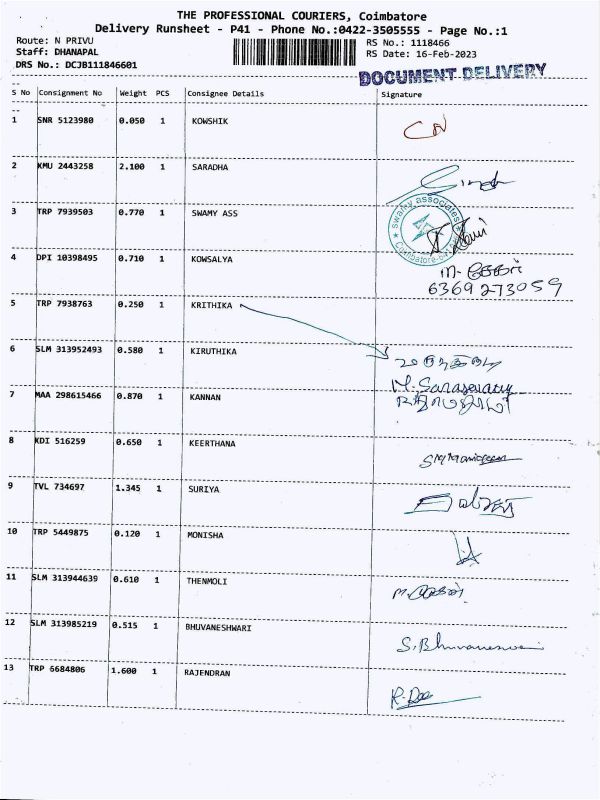 THE PROFESSIONAL COURIERS, Coimbatore
Delivery Runsheet - P41 - Phone No.:0422-3505555 - Page No.:1
Route: N PRIVU
RS No.: 1118466
Staff: DHANAPAL
RS Date: 16-Feb-2023
DRS No.: DCJB111846601
DOCUMENT DELIVERY
S No Consignment No Weight PCS Consignee Details Signature
1 SNR 5123980 0.050 1 KOWSHIK
2 KMU 2443258 2.100 1 SARADHA
3 TRP 7939503 0.770 1 SWAMY ASS
swamy associates
4 DPI 10398495 0.710 1 KOWSALYA
6369 273059
5 TRP 7938763 0.250 1 KRITHIKA
6 SLM 313952493 0.580 1 KIRUTHIKA
M. Saraswathy
7 MAA 298615466 0.870 1 KANNAN
8 KDI 516259 0.650 1 KEERTHANA
9 TVL 734697 1.345 1 SURIYA
10 TRP 5449875 0.120 1 MONISHA
11 SLM 313944639 0.610 1 THENMOLI
12 SLM 313985219 0.515 1 BHUVANESHWARI
S.Bhuvaneswari
13 TRP 6684806 1.600 1 RAJENDRAN